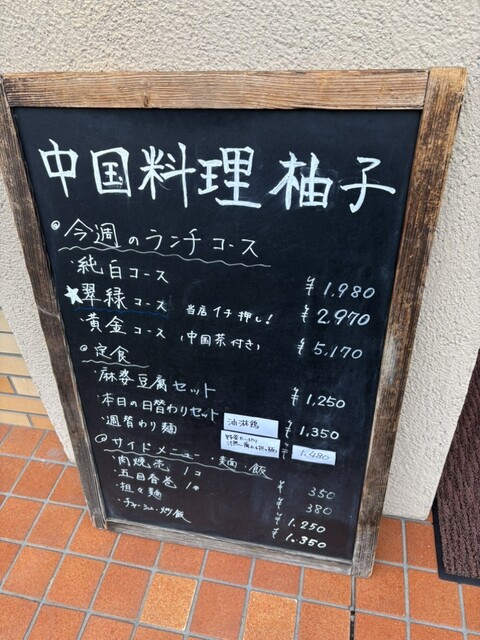 中国料理 柚子
◎今週のランチコース
・純白コース ¥1,980
★翠緑コース 当店イチ押し! ¥2,970
・黄金コース (中国茶付き) ¥5,170
◎定食
・麻婆豆腐セット ¥1,250
・本日の日替わりセット 油淋鶏 ¥1,350
・週替わり麺 1,480
◎サイドメニュー・麺・飯
・肉焼売 1コ ¥350
・五目春巻 1本 ¥380
・担々麺 ¥1,250
・チャーシュー炒飯 ¥1,350